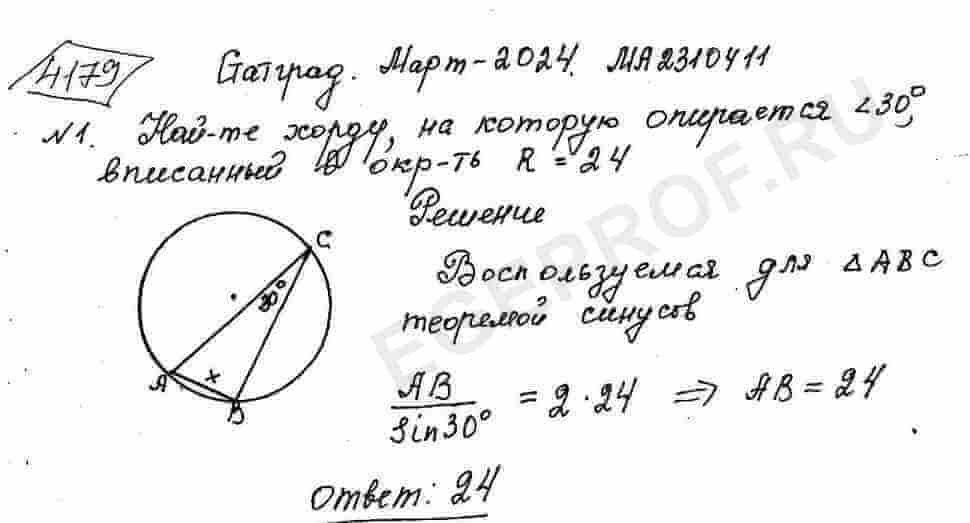 4179
Статград. Март-2024. МА2310411
№1. Най-те хорду, на которую опирается ∠30°,
вписанный в окр-ть R = 24
Решение
C
30°
Воспользуемся для △ABC
теоремой синусов
A x
B
AB/sin30° = 2·24 ⇒ AB = 24
Ответ: 24
EGEPROF.RU